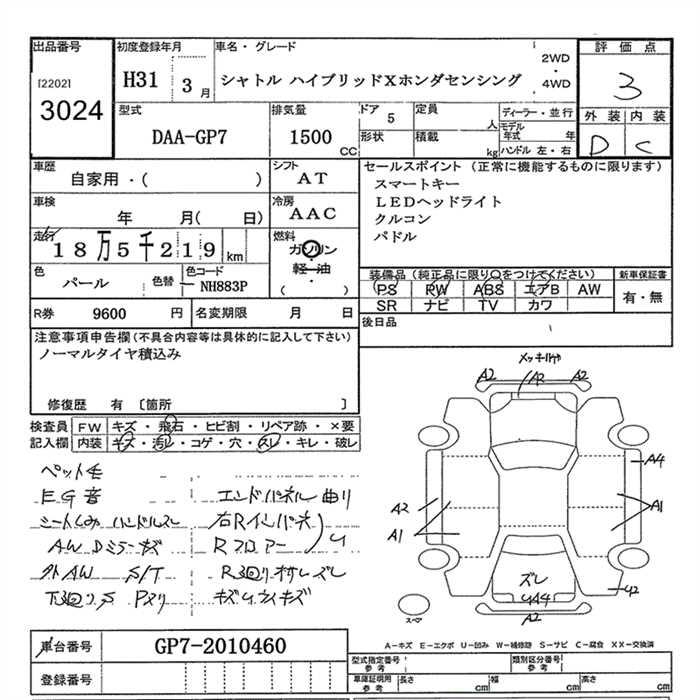 出品番号
[2202]
3024
初度登録年月
H31 3 月
車名・グレード
シャトル ハイブリッドXホンダセンシング
2WD
・
4WD
評価点
3
外装 内装
D C
型式
DAA-GP7
排気量
1500 CC
ドア 5
形状
定員 人
積載 kg
ディーラー・並行
モデル年式 年
ハンドル 左・右
車歴
自家用・( )
シフト
AT
車検
年 月( 日)
冷房
AAC
走行
18万5千219 km
燃料
ガソリン
・
軽・油
( )
色
パール
色替
色コード
NH883P
セールスポイント (正常に機能するものに限ります)
スマートキー
LEDヘッドライト
クルコン
パドル
装備品(純正品に限り○をつけてください)
PS PW ABS エアB AW
SR ナビ TV カワ
新車保証書
有・無
R券 9600 円
名変期限 月 日
後日品
注意事項申告欄(不具合内容等は具体的に記入して下さい)
ノーマルタイヤ積込み
修復歴 有 〔箇所 〕
検査員記入欄
FW キズ・飛石・ヒビ割・リペア跡・×要
内装 キズ・汚レ・コゲ・穴・スレ・キレ・破レ
ペット毛
EG音 エンドパネル曲り
シートしみ ハンドルスレ 右Rインパネ
AW Dミラーキズ Rフロアー
外AW S/T R廻り
下廻りS Pメリ
A2 A2 A2
A4
A2
A1
A1
U2
ズレ
A2
スペア
A－キズ E－エクボ U－凹み W－補修跡 S－サビ C－腐食 XX－交換済
車台番号 GP7-2010460
登録番号
型式指定番号 参考
類別区分番号 参考
車庫証明用 参考
長さ cm
幅 cm
高さ cm